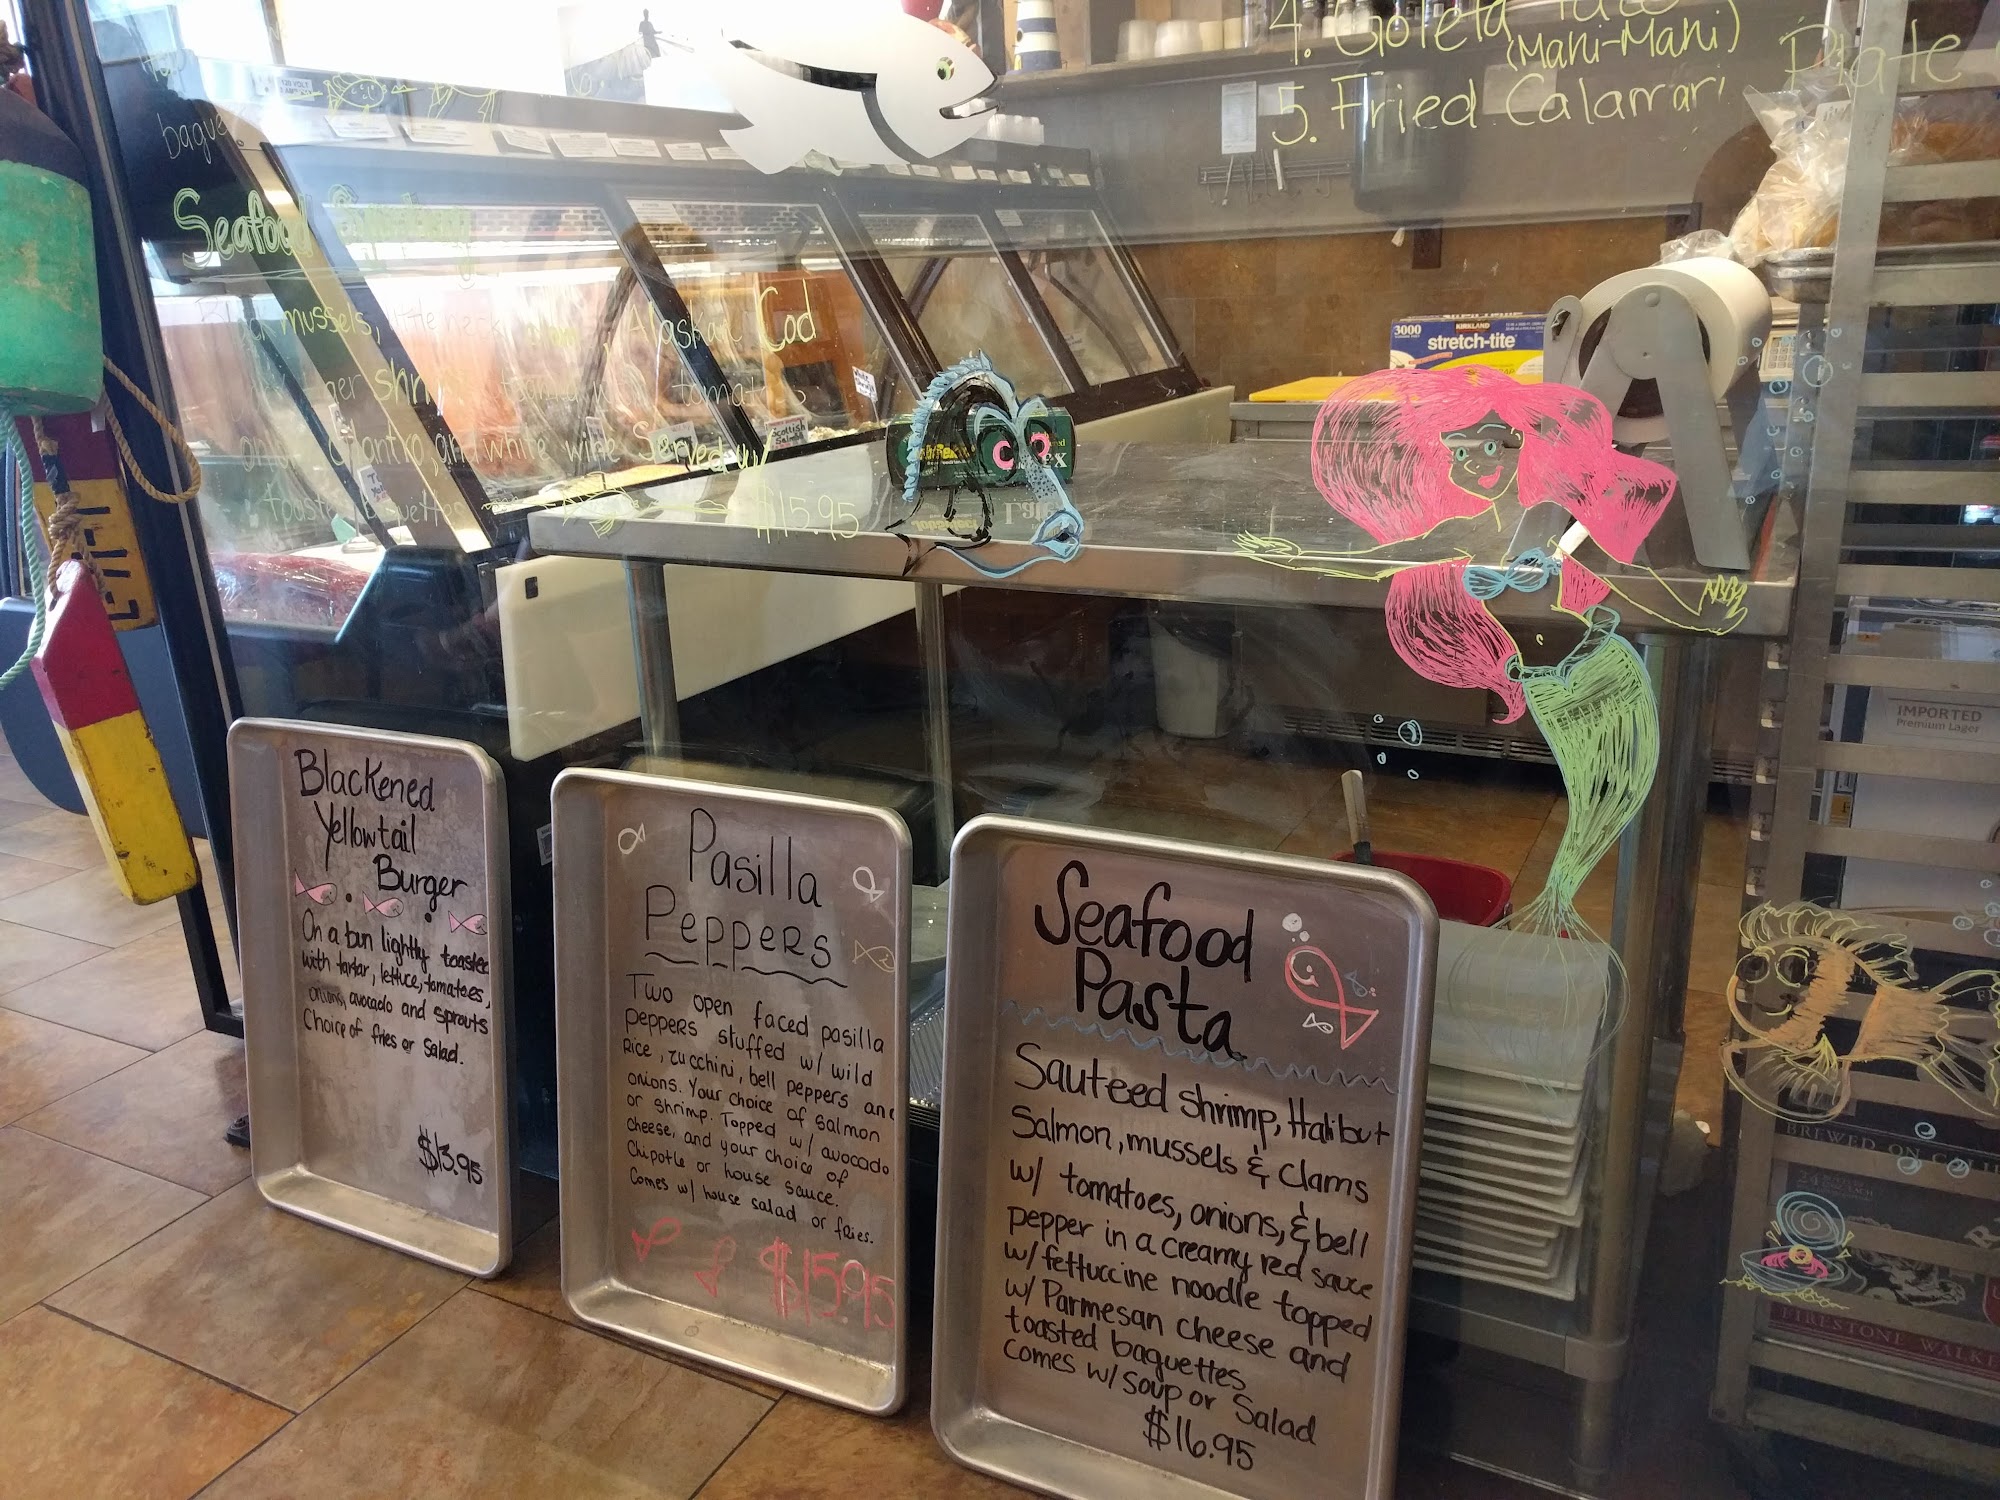 4. Goleta
(Mahi-Mahi)
5. Fried Calamari
Plate
Seafood
mussels, Alaskan Cod
tomatoes
and white wine Served w/
toasted baguettes
$15.95
Scottish
Salmon
3000
KIRKLAND
stretch-tite
IMPORTED
Premium Lager
BREWED ON
24
FIRESTONE WALKE
Blackened
Yellowtail
Burger
On a bun lightly toasted
with tartar, lettuce, tomatoes,
onions, avocado and sprouts
Choice of fries or Salad.
$13.95
Pasilla
Peppers
Two open faced pasilla
peppers stuffed w/ wild
Rice, zucchini, bell peppers and
onions. Your choice of salmon
or shrimp. Topped w/ avocado
cheese, and your choice of
Chipotle or house sauce.
Comes w/ house salad or fries.
$15.95
Seafood
Pasta
Sauteed shrimp, Halibut
Salmon, mussels & clams
w/ tomatoes, onions, & bell
pepper in a creamy red sauce
w/ fettuccine noodle topped
w/ Parmesan cheese and
toasted baguettes
Comes w/ soup or Salad
$16.95